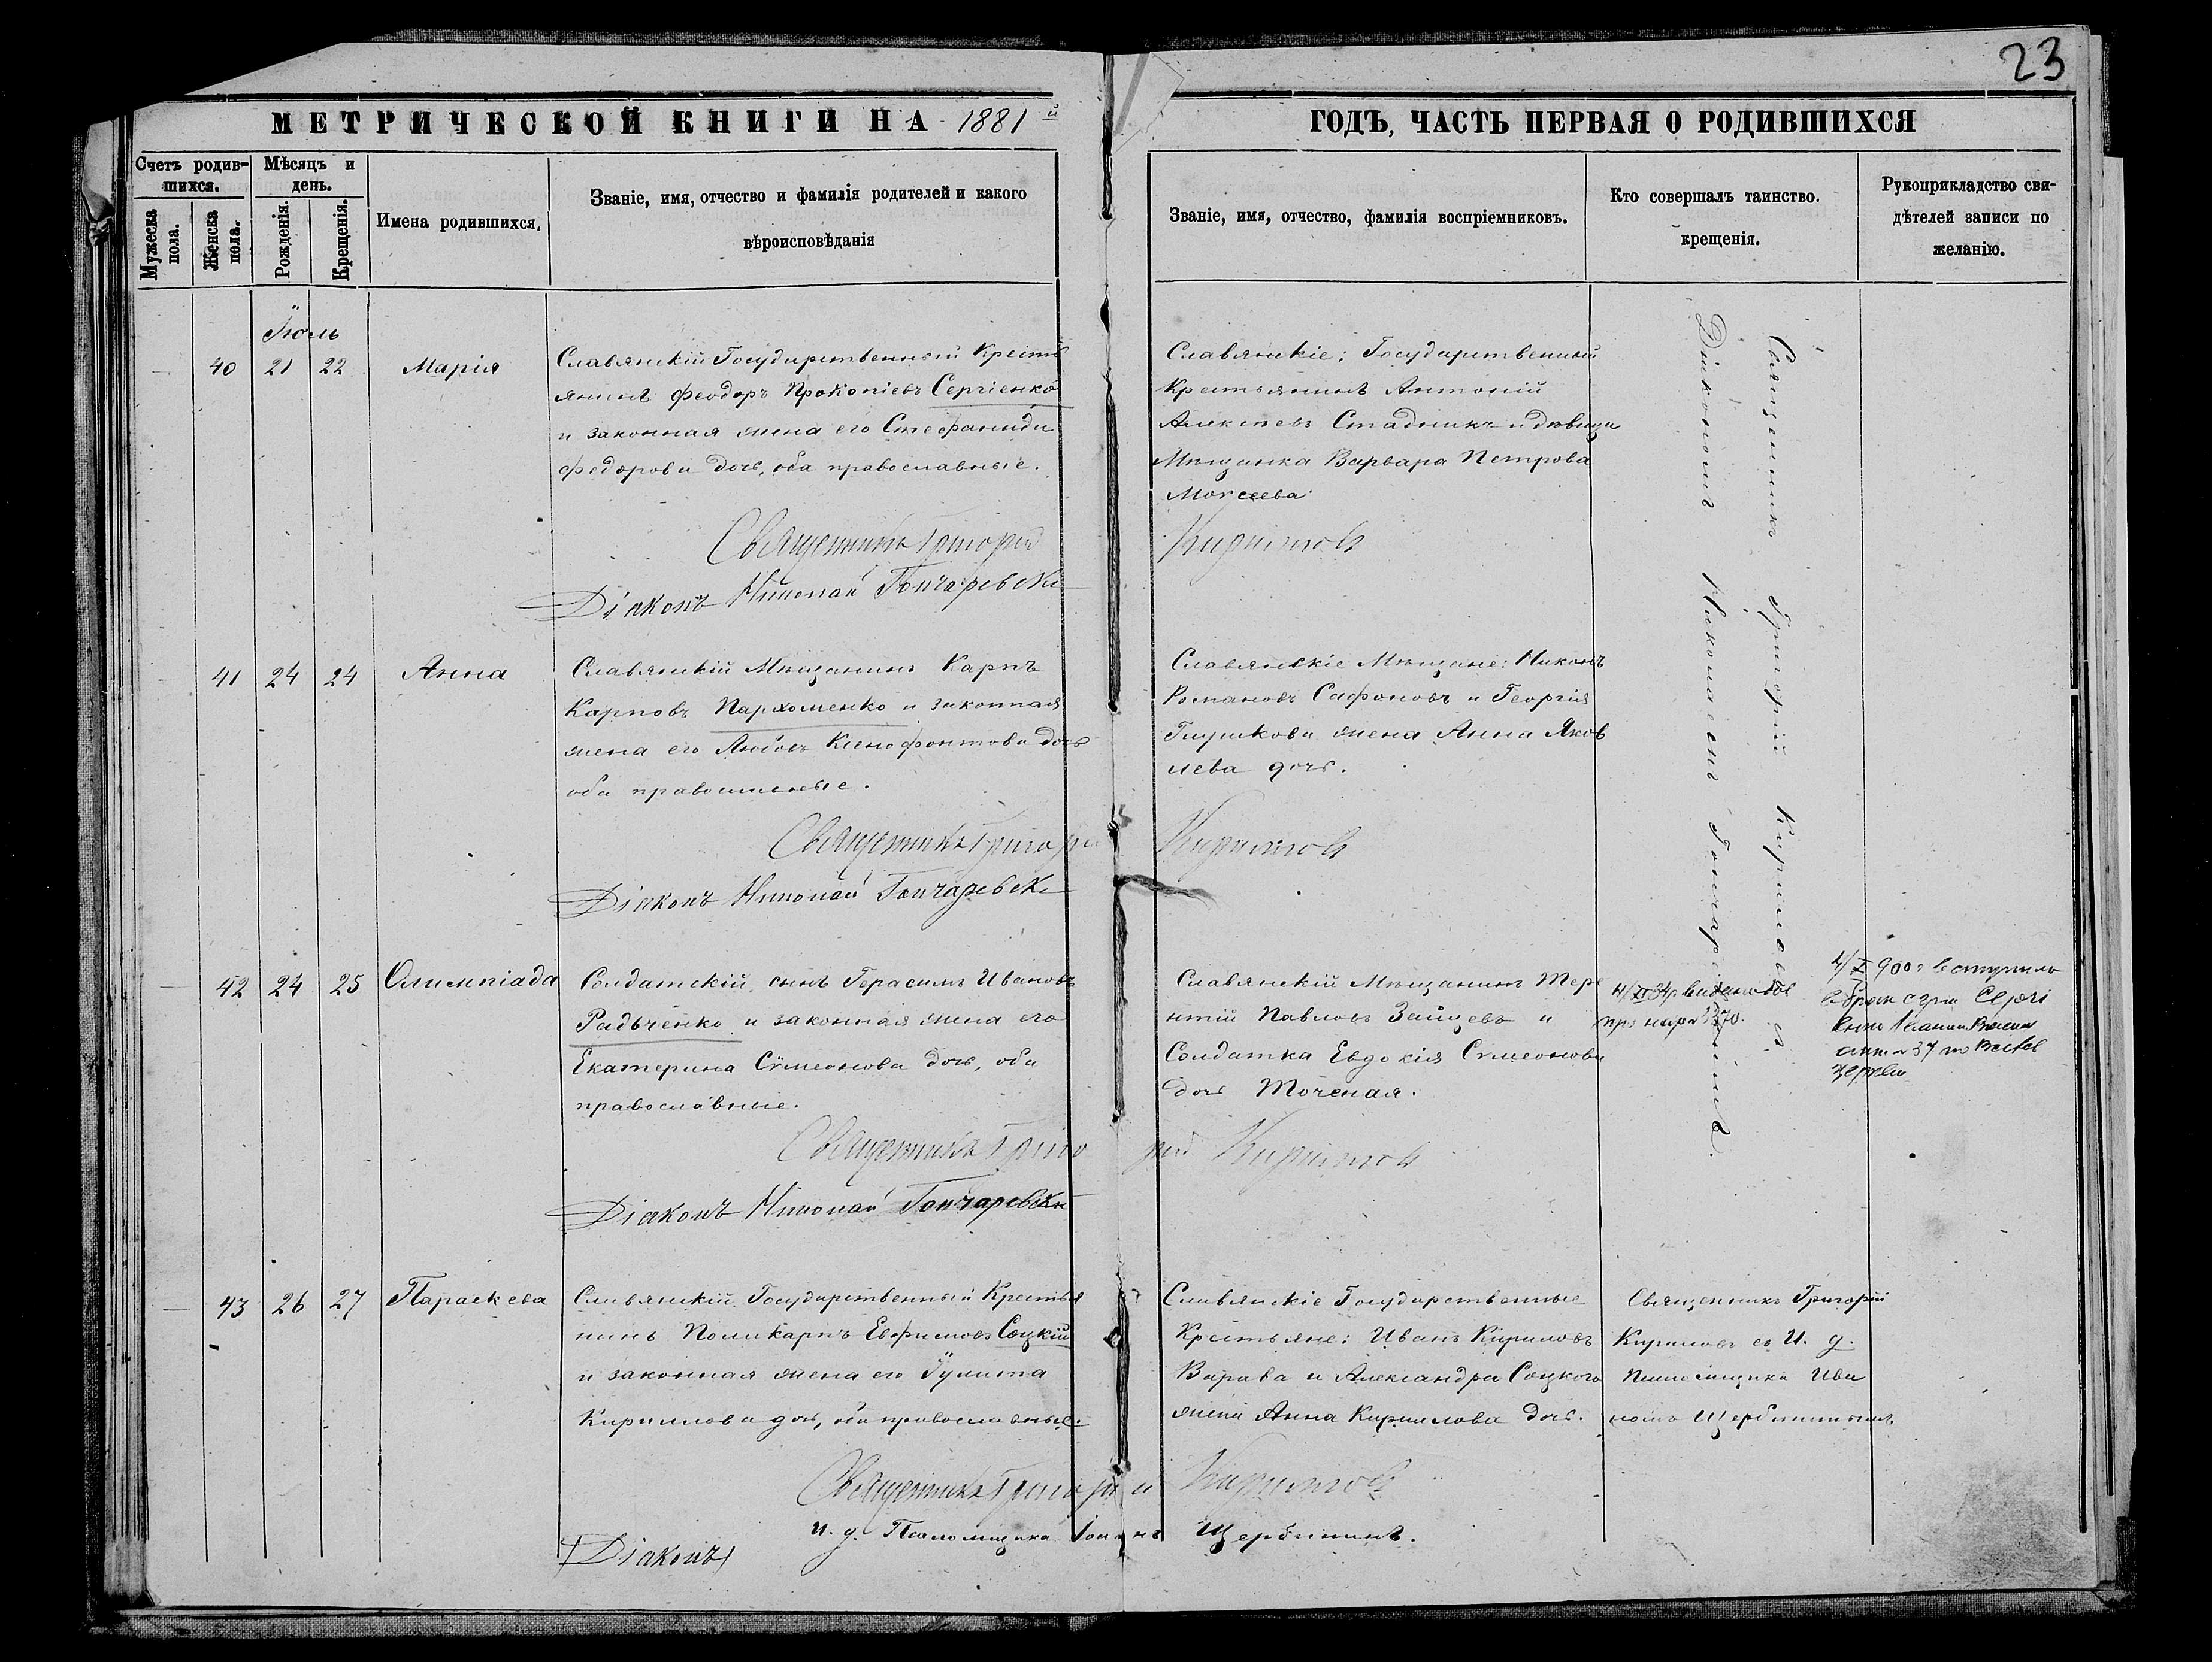 23
МЕТРИЧЕСКОЙ КНИГИ НА 1881й
ГОДЪ, ЧАСТЬ ПЕРВАЯ О РОДИВШИХСЯ
Счетъ родив-
шихся.
Мужеска
пола.
Женска
пола.
Мѣсяцъ и
день.
Рожденія.
Крещенія.
Имена родившихся.
Званіе, имя, отчество и фамилія родителей и какого
вѣроисповѣданія
Званіе, имя, отчество, фамилія воспріемниковъ.
Кто совершалъ таинство.
крещенія.
Рукоприкладство сви-
дѣтелей записи по
желанію.
Іюль
40 21 22 Марія
Славянскій Государственный Кресть
янинъ Феодоръ Прокопіевъ Сергіенко
и законная жена его Стефанида
Федорова дочь, оба православные.
Священникъ Григорій
Діаконъ Николай Гончаревскі
Славянскіе: Государственный
Крестьянинъ Антоній
Алексѣевъ Стадникъ и дѣвица
Мѣщанка Варвара Петрова
Моисеева
Кириловъ
Священникъ Григорій Кириловъ съ
Діакономъ Николаемъ Гончаревскимъ.
41 24 24 Анна
Славянскій Мѣщанинъ Карпъ
Карповъ Пархоменко и законная
жена его Любовь Ксенофонтова дочь
оба православные.
Священникъ Григорі
Діаконъ Николай Гончаревск
Славянскіе Мѣщане: Никонъ
Романовъ Сафоновъ и Георгія
Глушкова жена Анна Яков
лева дочь.
Кириловъ
42 24 25 Олимпіада
Солдатскій сынъ Герасимъ Ивановъ
Радьченко и законная жена его
Екатерина Сѵмеонова дочь, оба
православные.
Священникъ Григо
Діаконъ Николай Гончаревскі
Славянскій Мѣщанинъ Тере
нтій Павловъ Зайцевъ и
Солдатка Евдокія Сѵмеонова
дочь Точеная.
рій Кириловъ
4/X 900г вступила
въ бракъ
№ 37
церкви
43 26 27 Параскева
Славянскій Государственный Крестья
нинъ Поликарпъ Евфимовъ Соцкій
и законная жена его Іулита
Кириллова дочь, оба православные.
Священникъ Григорі
И. д. Псаломщика Іоаннъ
Діаконъ
Славянскіе Государственные
Крестьяне: Иванъ Кириловъ
Варава и Александра Соцкого
жена Анна Кириллова дочь.
й Кириловъ
Щербининъ.
Священникъ Григорій
Кириловъ съ И. д.
Псаломщика Ива
номъ Щербининымъ.